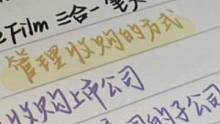 Film 三合一笔头
管理收购的方式
收购上市公司
的子公司